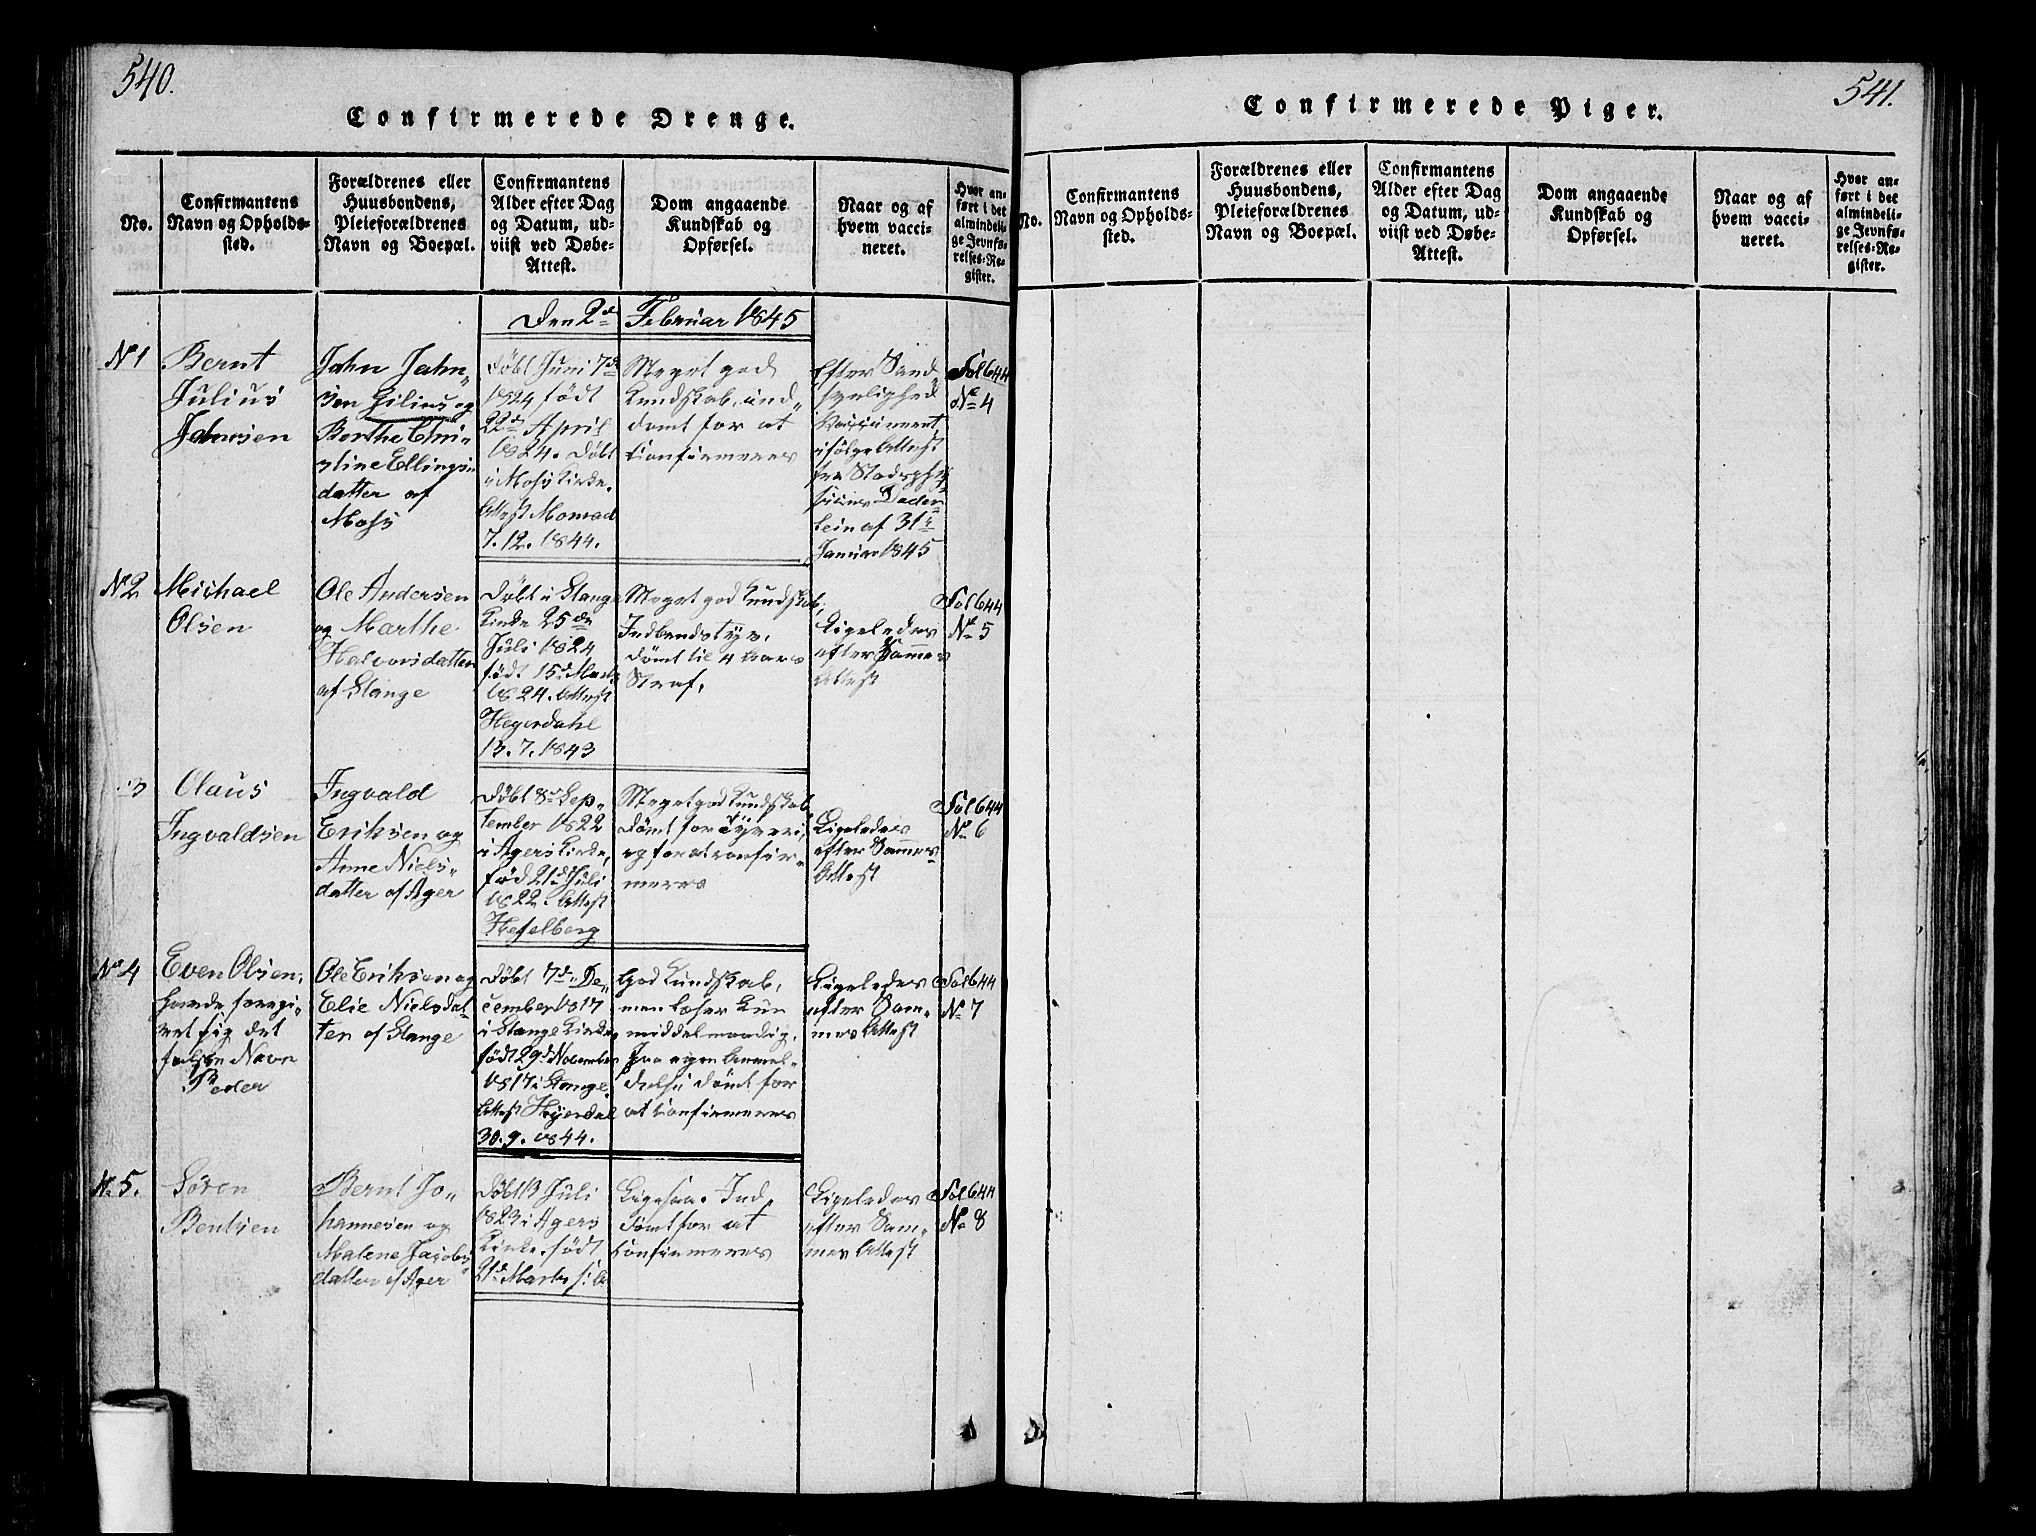 540.
Confirmerede Drenge.
No.
Confirmantens
Navn og Opholds-
sted.
Forældrenes eller
Huusbondens,
Pleieforældrenes
Navn og Boepæl.
Confirmantens
Alder efter Dag
og Datum, ud-
viist ved Døbe-
Attest.
Dom angaaende
Kundskab og
Opførsel.
Naar og af
hvem vacci-
neret.
Hvor an-
ført i det
almindeli-
ge Jevnfø-
relses-Re-
gister.
Den 2d Februar 1845
No 1
Bernt
Julius
Johnsen
John John-
sen Gilius og
Berthe Chri-
stine Ellings-
datter af
Moss
Døbt Juni 7de
1824 født
22de April
1824. Døbt
i Moss Kirke.
Attest Monrad
7.12.1844.
Meget god
Kundskab, ind-
dømt for at
Confirmeres
Efter Sand-
synlighed
Vaccineret,
ifølge Attest
fra Stadsphy-
sicus Døder-
lein af 31te
Januar 1845
Fol 644
No 4
No 2
Michael
Olsen
Ole Andersen
og Marthe
Halvorsdatter
af Stange
Døbt i Stange
Kirke 25de
Juli 1824
født 15d Marts
1824. Attest
Hegerdahl
13.7.1843
Meget god Kundskab,
Indbrudstyv,
dømt til 4 Aars
Straf.
Ligeledes
efter Sammes
Attest
Fol 644
No 5
3
Olaus
Ingvaldsen
Ingvald
Eriksen og
Anne Niels-
datter af Ager
Døbt 8d Sep-
tember 1822
i Agers Kirke,
fød 21d Juli
1822. Attest
Hesselberg
Meget god Kundskab
dømt for Tyveri,
og for at confir-
meres
Ligeledes
efter Sammes
Attest
Fol 644
No 6
No 4
Even Olsen,
havde foregi-
vet sig det
falske Navn
Peder
Ole Eriksen og
Elie Nielsdat-
ter af Stange
Døbt 7de De-
cember 1817
i Stange Kirke,
født 29d November
1817 i Stange.
Attest Hejerdal
30.9.1844.
God Kundskab,
men læser kun
middelmaadig.
Paa egen Anmel-
delse dømt for
at Confirmeres
Ligeledes
efter Sam-
mes Attest
Fol 644
No 7
No 5.
Søren
Berntsen
Bernt Jo-
hannesen og
Malene Jacobs-
datter af Ager
Døbt 13 Juli
1823 i Agers
Kirke, født
21d Marts s. A
Ligesaa. Ind-
dømt for at
Confirmeres
Ligeledes
efter Sam-
mes Attest
Fol 644
No 8
541.
Confirmerede Piger.
No.
Confirmantens
Navn og Opholds-
sted.
Forældrenes eller
Huusbondens,
Pleieforældrenes
Navn og Boepæl.
Confirmantens
Alder efter Dag
og Datum, ud-
viist ved Døbe-
Attest.
Dom angaaende
Kundskab og
Opførsel.
Naar og af
hvem vacci-
neret.
Hvor an-
ført i det
almindeli-
ge Jevnfø-
relses-Re-
gister.